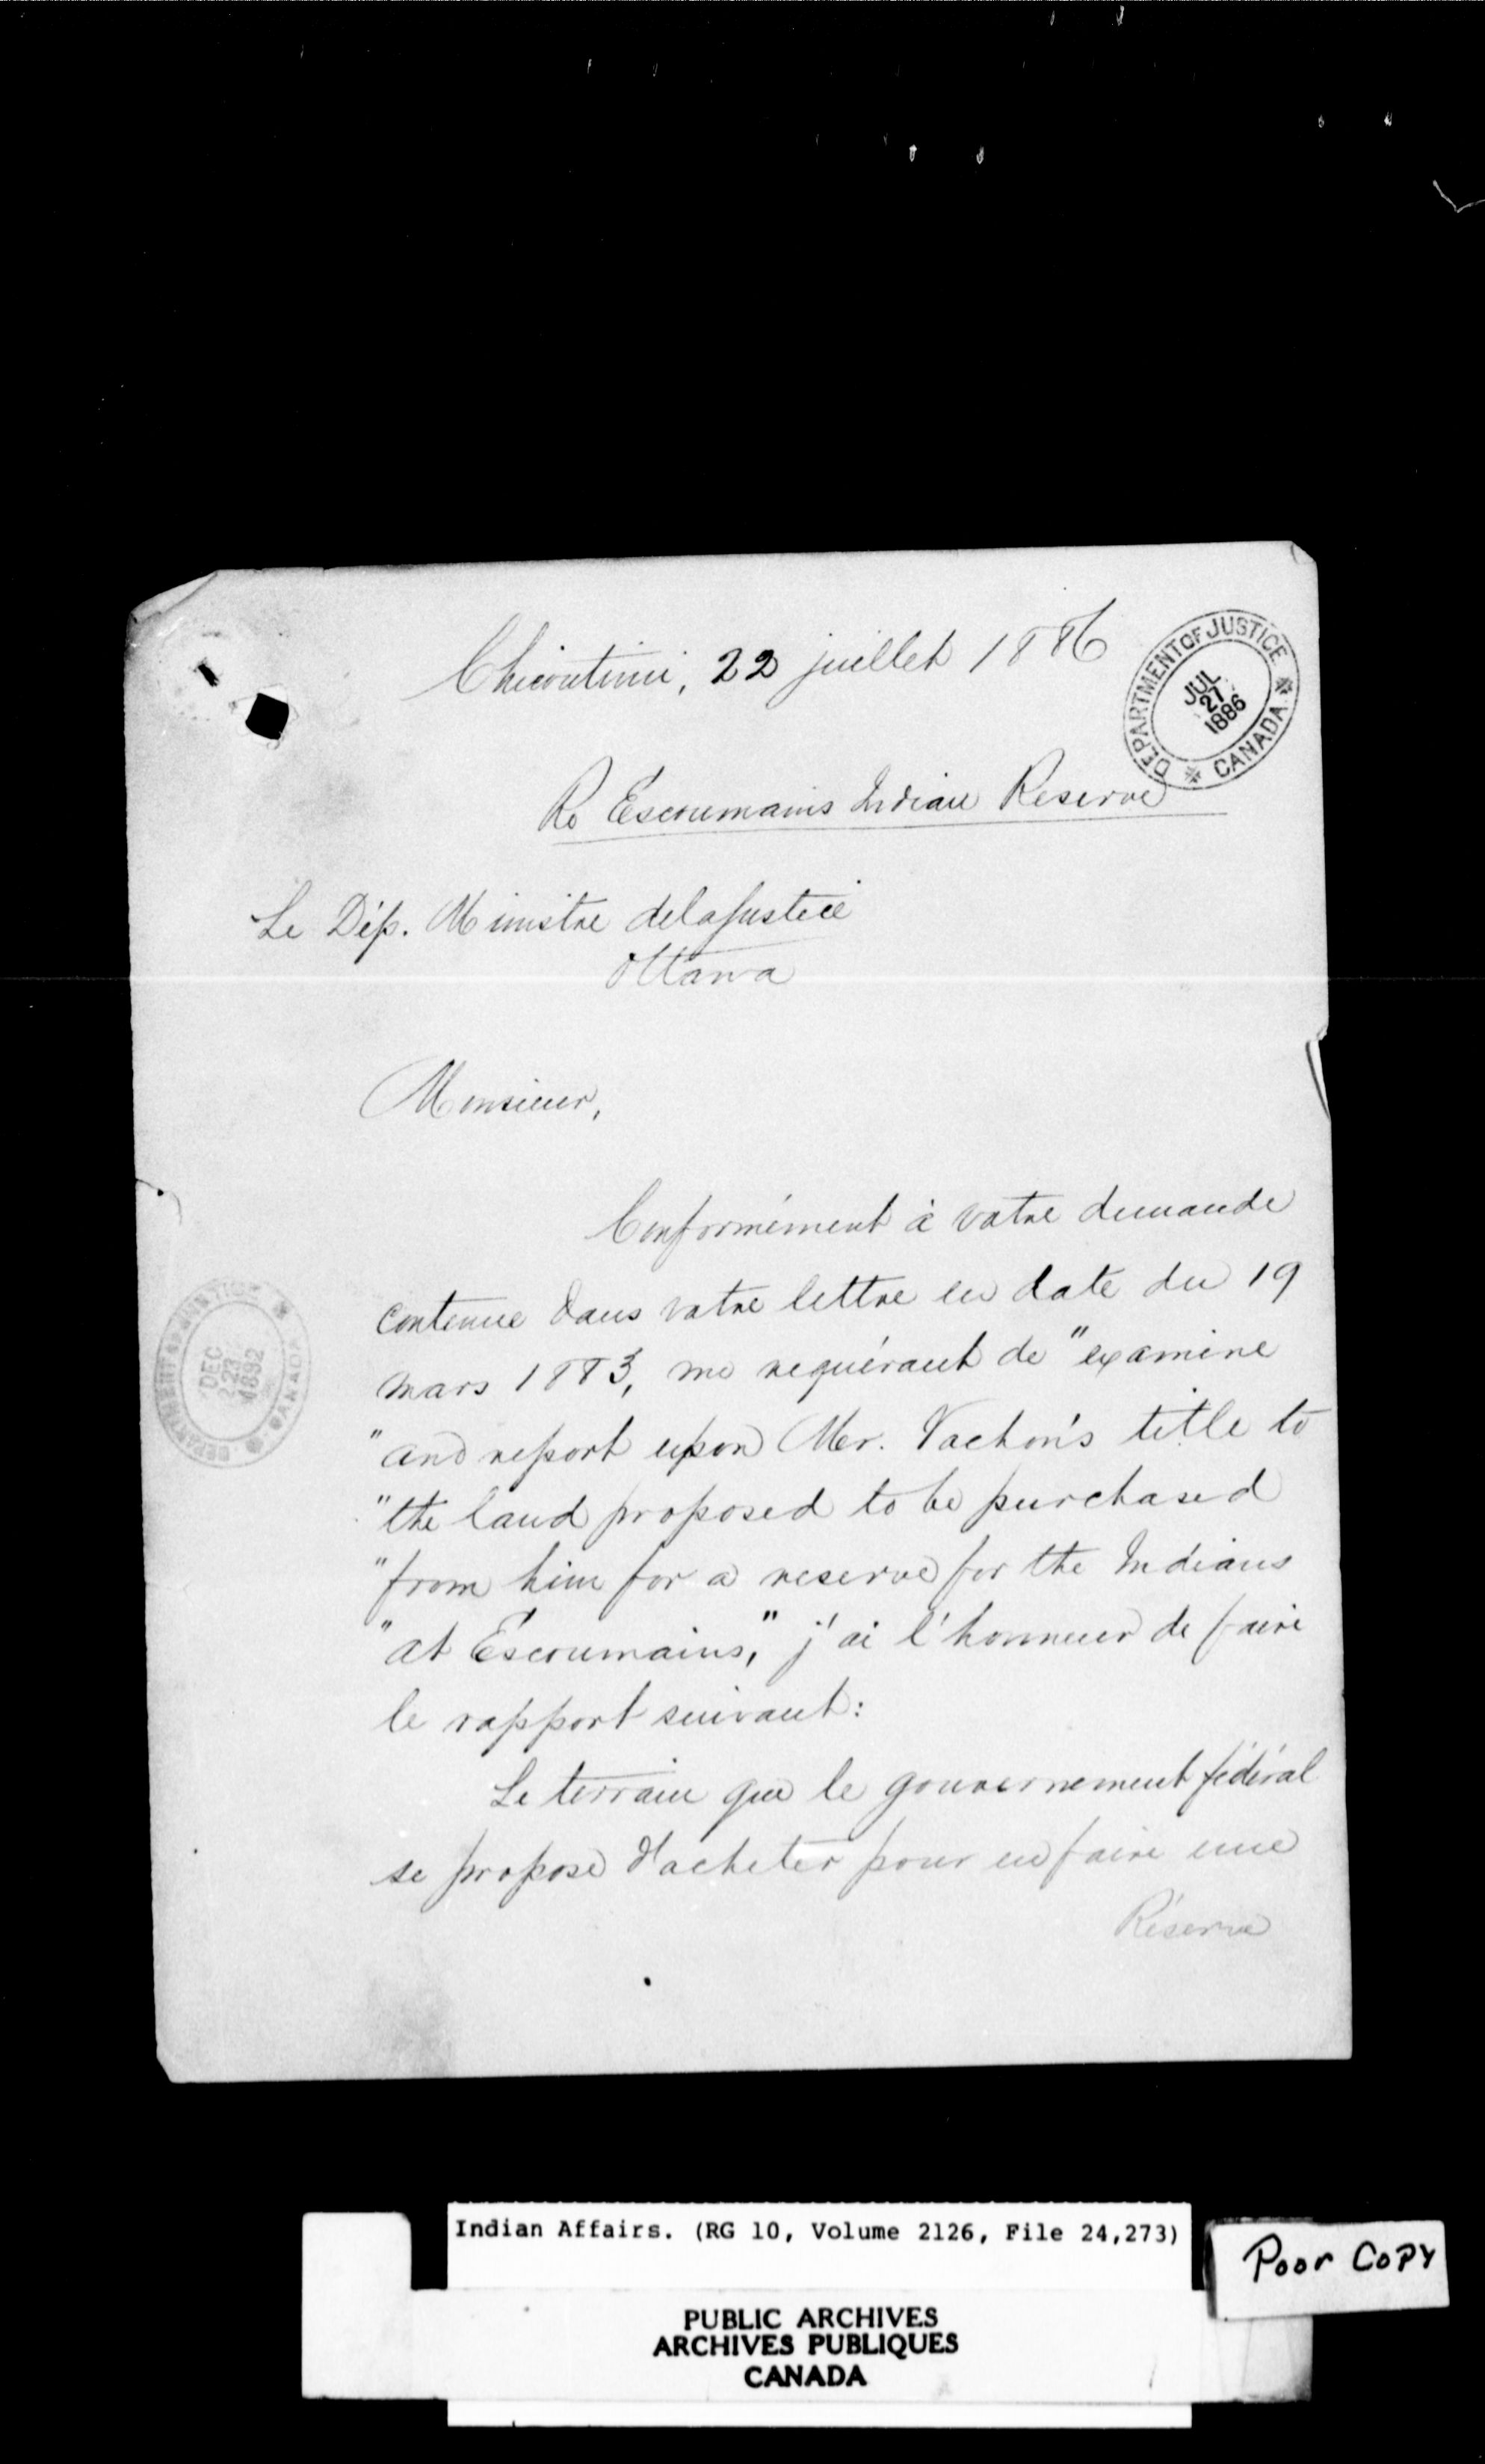 Chicoutimi, 22 juillet 1886
DEPARTMENT OF JUSTICE
JUL
27
1886
CANADA
Re Escoumains Indian Reserve
Le Dép. Ministre de la Justice
Ottawa
Monsieur,
Conformément à votre demande
contenue dans votre lettre en date du 19
mars 1883, me requérant de "examine
"and report upon Mr. Vachon's title to
"the land proposed to be purchased
"from him for a reserve for the Indians
"at Escoumains," j'ai l'honneur de faire
le rapport suivant:
Le terrain que le gouvernement fédéral
se propose d'acheter pour en faire une
Réserve
DEPARTMENT OF JUSTICE
DEC
23
1892
CANADA
Indian Affairs. (RG 10, Volume 2126, File 24,273)
Poor Copy
PUBLIC ARCHIVES
ARCHIVES PUBLIQUES
CANADA